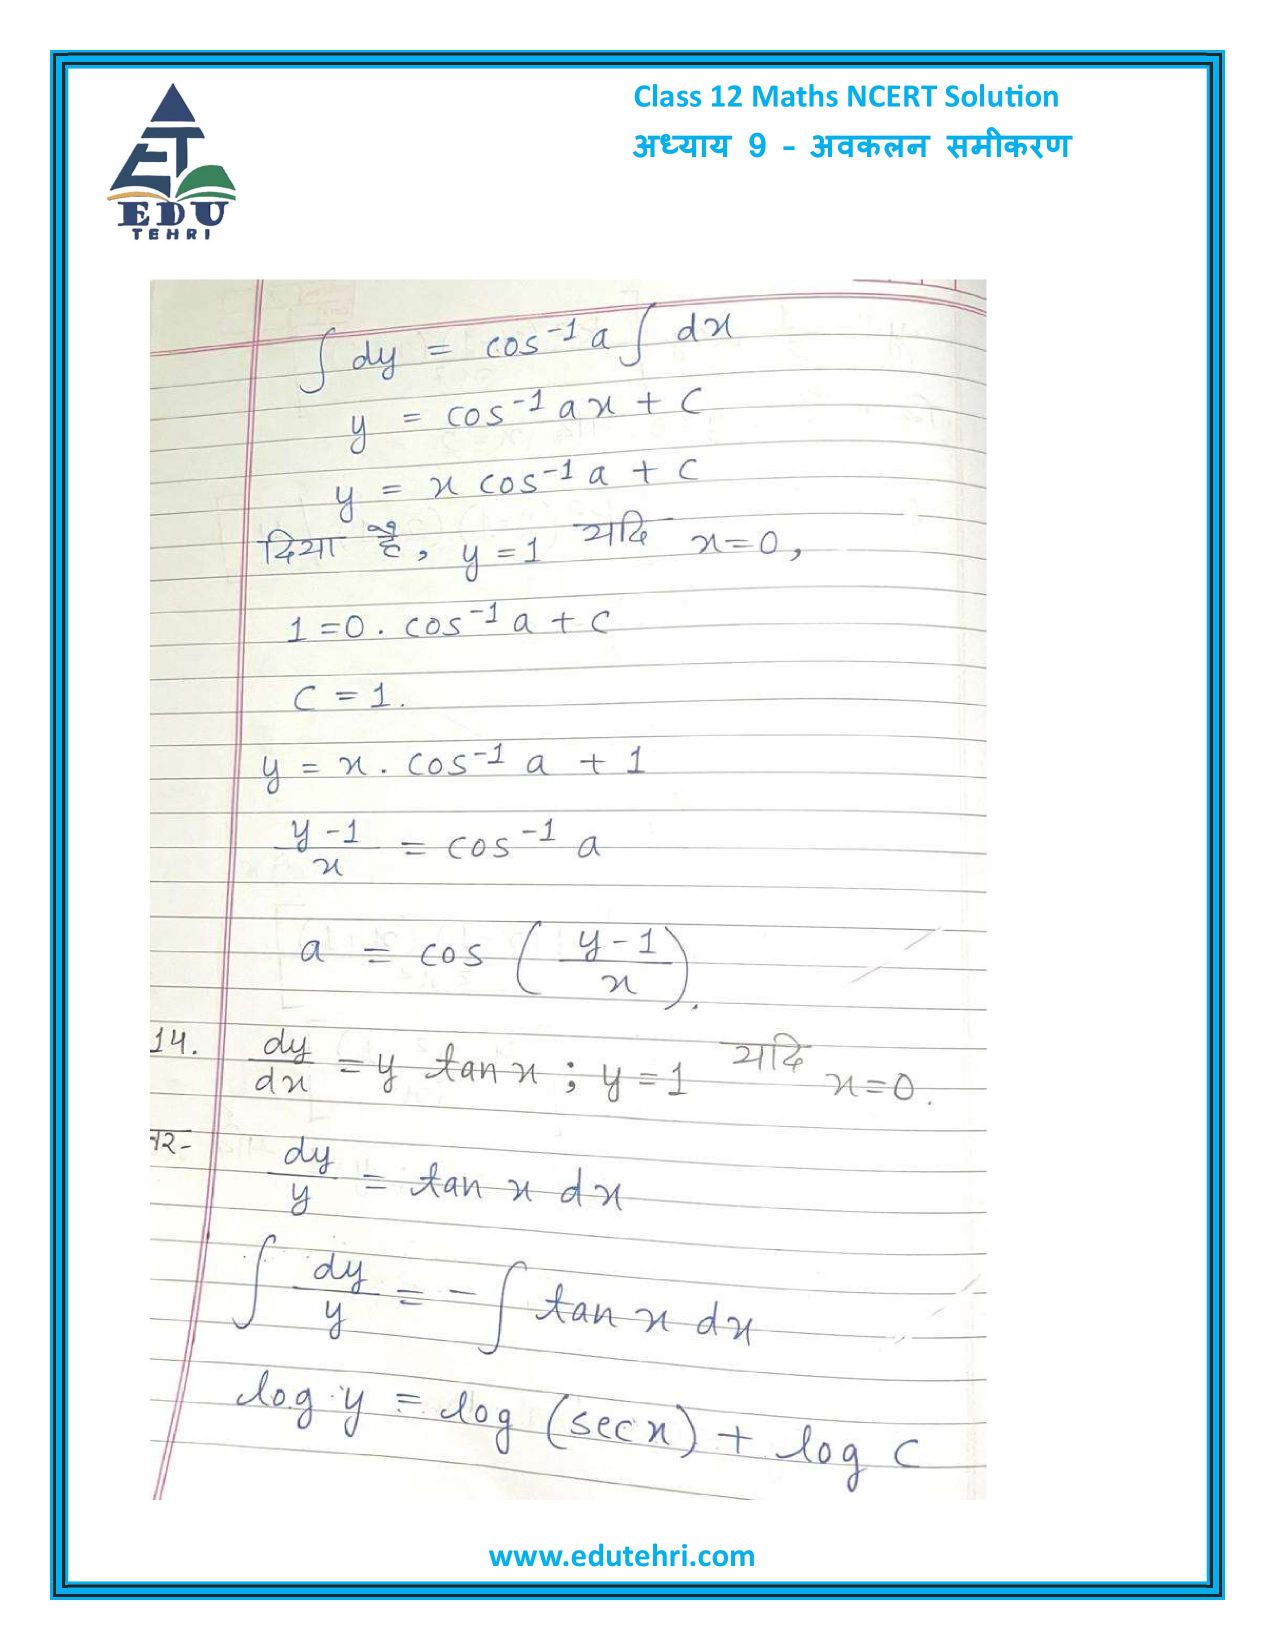 Class 12 Maths NCERT Solution
अध्याय 9 - अवकलन समीकरण
EDU
TEHRI
∫ dy = cos⁻¹ a ∫ dx
y = cos⁻¹ a x + c
y = x cos⁻¹ a + c
दिया है, y = 1 यदि x = 0,
1 = 0 . cos⁻¹ a + c
c = 1.
y = x . cos⁻¹ a + 1
(y - 1)/x = cos⁻¹ a
a = cos ((y - 1)/x).
14. dy/dx = y tan x ; y = 1 यदि x = 0.
dy/y = tan x dx
∫ dy/y = - ∫ tan x dx
log y = log (sec x) + log c
www.edutehri.com